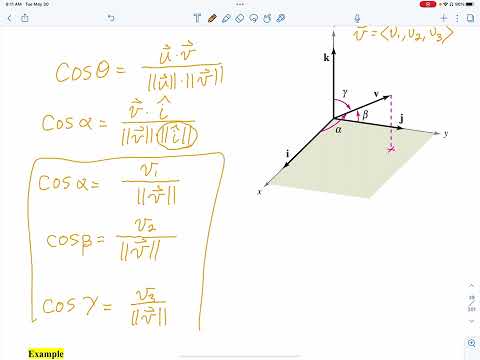 9:11 AM Tue May 30
90%
v⃗ = <v₁, v₂, v₃>
cosθ = u⃗ · v⃗ / ||u⃗|| · ||v⃗||
cosα = v⃗ · î / ||v⃗|| ||î||
cosα = v₁ / ||v⃗||
cosβ = v₂ / ||v⃗||
cosγ = v₃ / ||v⃗||
k
γ
v
β
j
y
α
i
x
Example